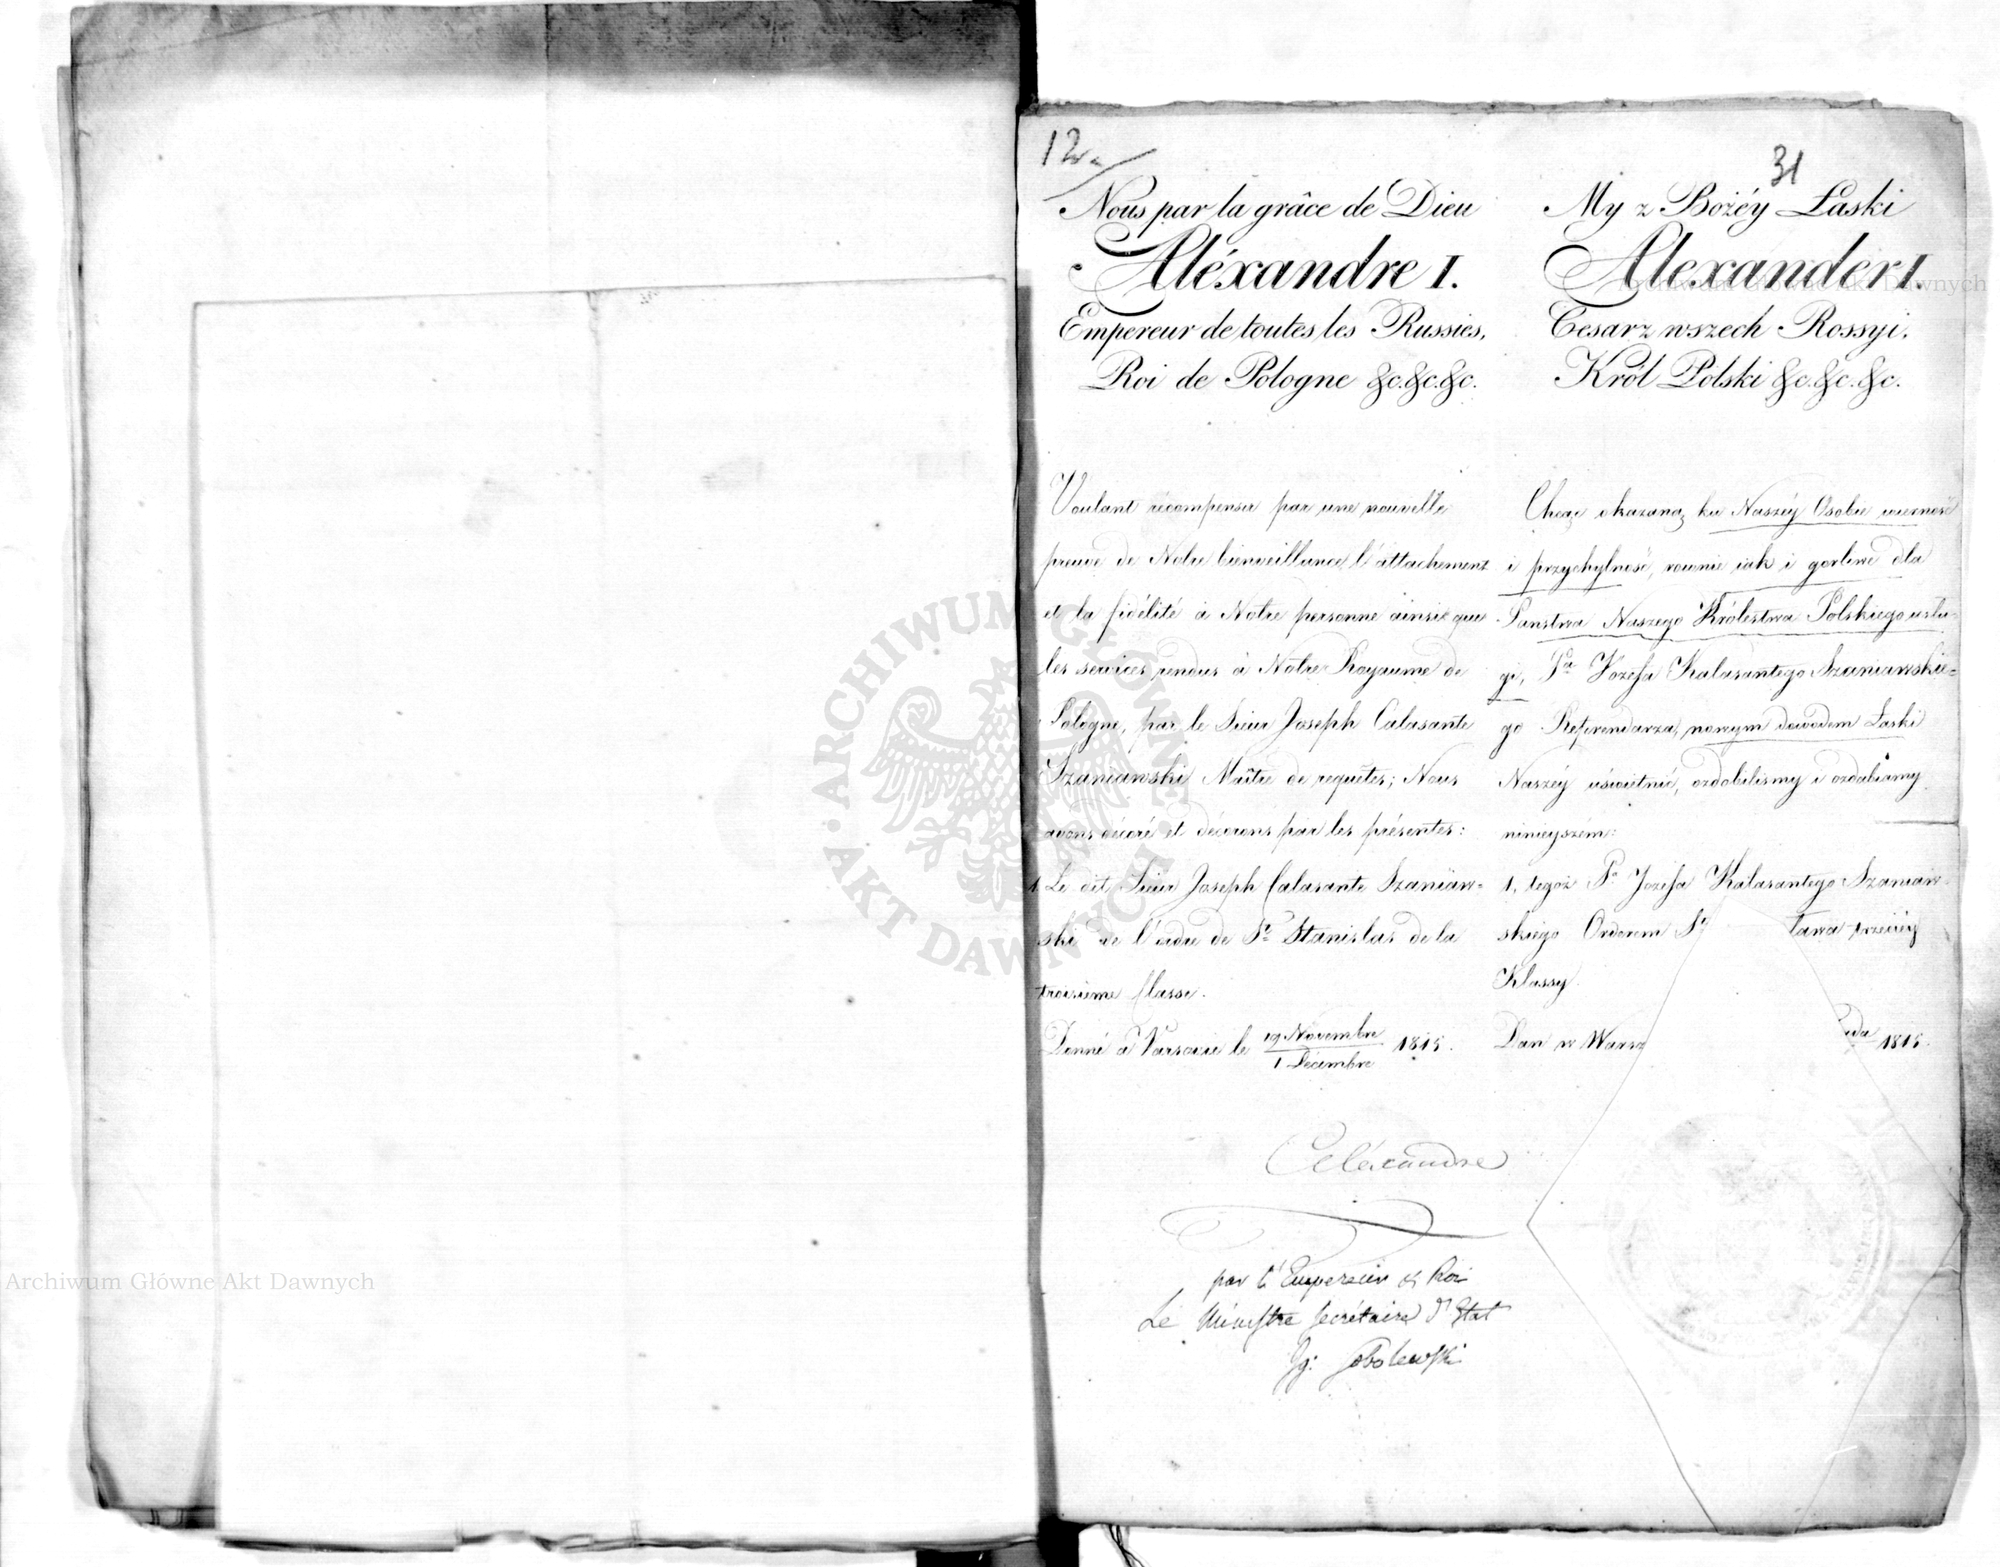 12
31
Nous par la grâce de Dieu
Aléxandre I.
Empereur de toutes les Russies,
Roi de Pologne &c. &c. &c.
Voulant récompenser par une nouvelle
preuve de Notre bienveillance l'attachement
et la fidélité à Notre personne ainsi que
les services rendus à Notre Royaume de
Pologne, par le Sieur Joseph Calasante
Szaniawski Maître de requêtes; Nous
avons décoré et décorons par les présentes:
1. Le dit Sieur Joseph Calasante Szaniaw-
ski de l'ordre de St. Stanislas de la
troisième Classe.
Donné à Varsovie le 19 Novembre / 1 Décembre 1815.
My z Bożéy Łaski
Alexander I.
Cesarz wszech Rossyi,
Król Polski &c. &c. &c.
Chcąc okazaną ku Naszéy Osobie wierność
i przychylność, równie iak i gorliwe dla
Państwa Naszego Królestwa Polskiego usłu-
gi, Pa Józefa Kalasantego Szaniawskie-
go Referendarza, nowym dowodem Łaski
Naszéy uświetnić, ozdobiliśmy i ozdabiamy
ninieyszém:
1, tegoż Pa Józefa Kalasantego Szaniaw-
skiego Orderem Sgo ława trzeciéy
Klassy.
Dan w Warsz ada 1815.
Aléxandre
par l'Empereur & Roi
Le Ministre Secrétaire d'Etat
Ig: Sobolewski
ARCHIWUM GŁÓWNE AKT DAWNYCH
Archiwum Główne Akt Dawnych
Archiwum Główne Akt Dawnych